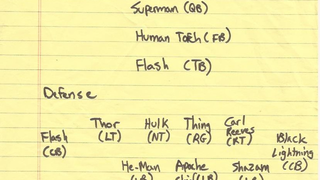 Superman (QB)
Human Torch (FB)
Flash (TB)
Defense
Flash (CB)
Thor (LT)
Hulk (NT)
Thing (RG)
Carl Reeves (RT)
Black Lightning (CB)
He-Man
Apache
Shazam